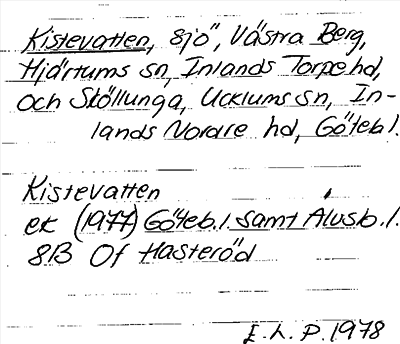 Kistevatten, sjö, Västra Berg,
Hjärtums sn, Inlands Torpe hd,
och Stöllunga, Ucklums sn, In-
lands Nordre hd, Göteb.l.
Kistevatten
ek (1977) Göteb.l. samt Älvsb.l.
8B Of Hasteröd
E.L.P. 1978